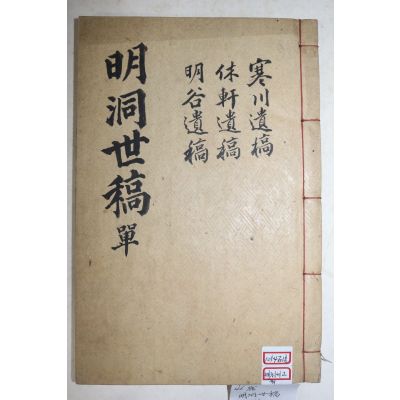 明洞世稿 單
寒川遺稿
休軒遺稿
明谷遺稿